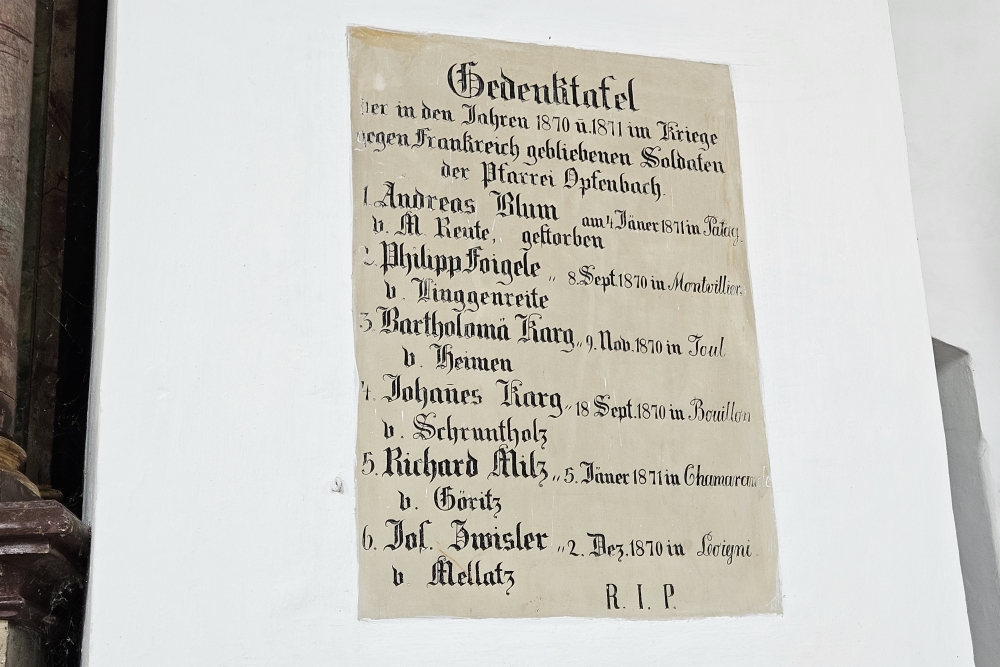 Gedenktafel
der in den Jahren 1870 ū. 1871 im Kriege
gegen Frankreich gebliebenen Soldaten
der Pfarrei Opfenbach.
1. Andreas Blum am 4 Jäner 1871 in Patay.
v. M. Reute, gestorben
2. Philipp Foigele „ 8. Sept. 1870 in Montvillier.
v. Linggenreite
3. Bartholomä Karg „ 9. Nov. 1870 in Toul
v. Heimen
4. Johan̄es Karg „ 18 Sept. 1870 in Bouillon
v. Schruntholz
5. Richard Milz „ 5. Jäner 1871 in
v. Göritz
6. Jos. Zwisler „ 2. Dez. 1870 in Loigni
v. Mellatz
R. I. P.